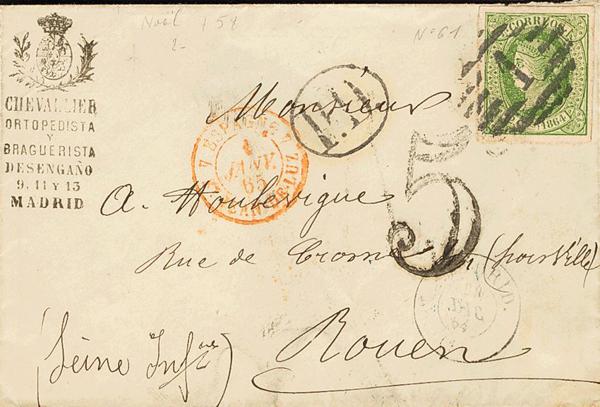 Noël + 58
2-
Nº 61
CHEVALLIER
ORTOPEDISTA
Y
BRAGUERISTA
DESENGAÑO
9. 11 Y 13
MADRID
CORREOS
1864
1
P.D.
7 ESPAGNE 7
4
JANV
65
ST JEAN-DE-LUZ
5
Monsieur
A. Houlevigue
Rue de Crosne (hors Ville)
Rouen
(Seine Infre)